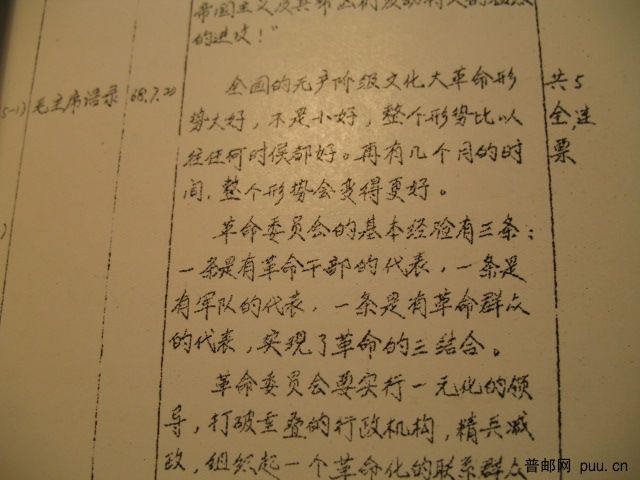 的进攻！"
5-1) 毛主席语录 68.7.20
全国的无产阶级文化大革命形
势大好，不是小好，整个形势比以
往任何时候都好。再有几个月的时
间，整个形势会变得更好。
革命委员会的基本经验有三条：
一条是有革命干部的代表，一条是
有军队的代表，一条是有革命群众
的代表，实现了革命的三结合。
革命委员会要实行一元化的领
导，打破重叠的行政机构，精兵减
政，组织起一个革命化的联系群众
共5
全，连
票
普邮网 puu.cn